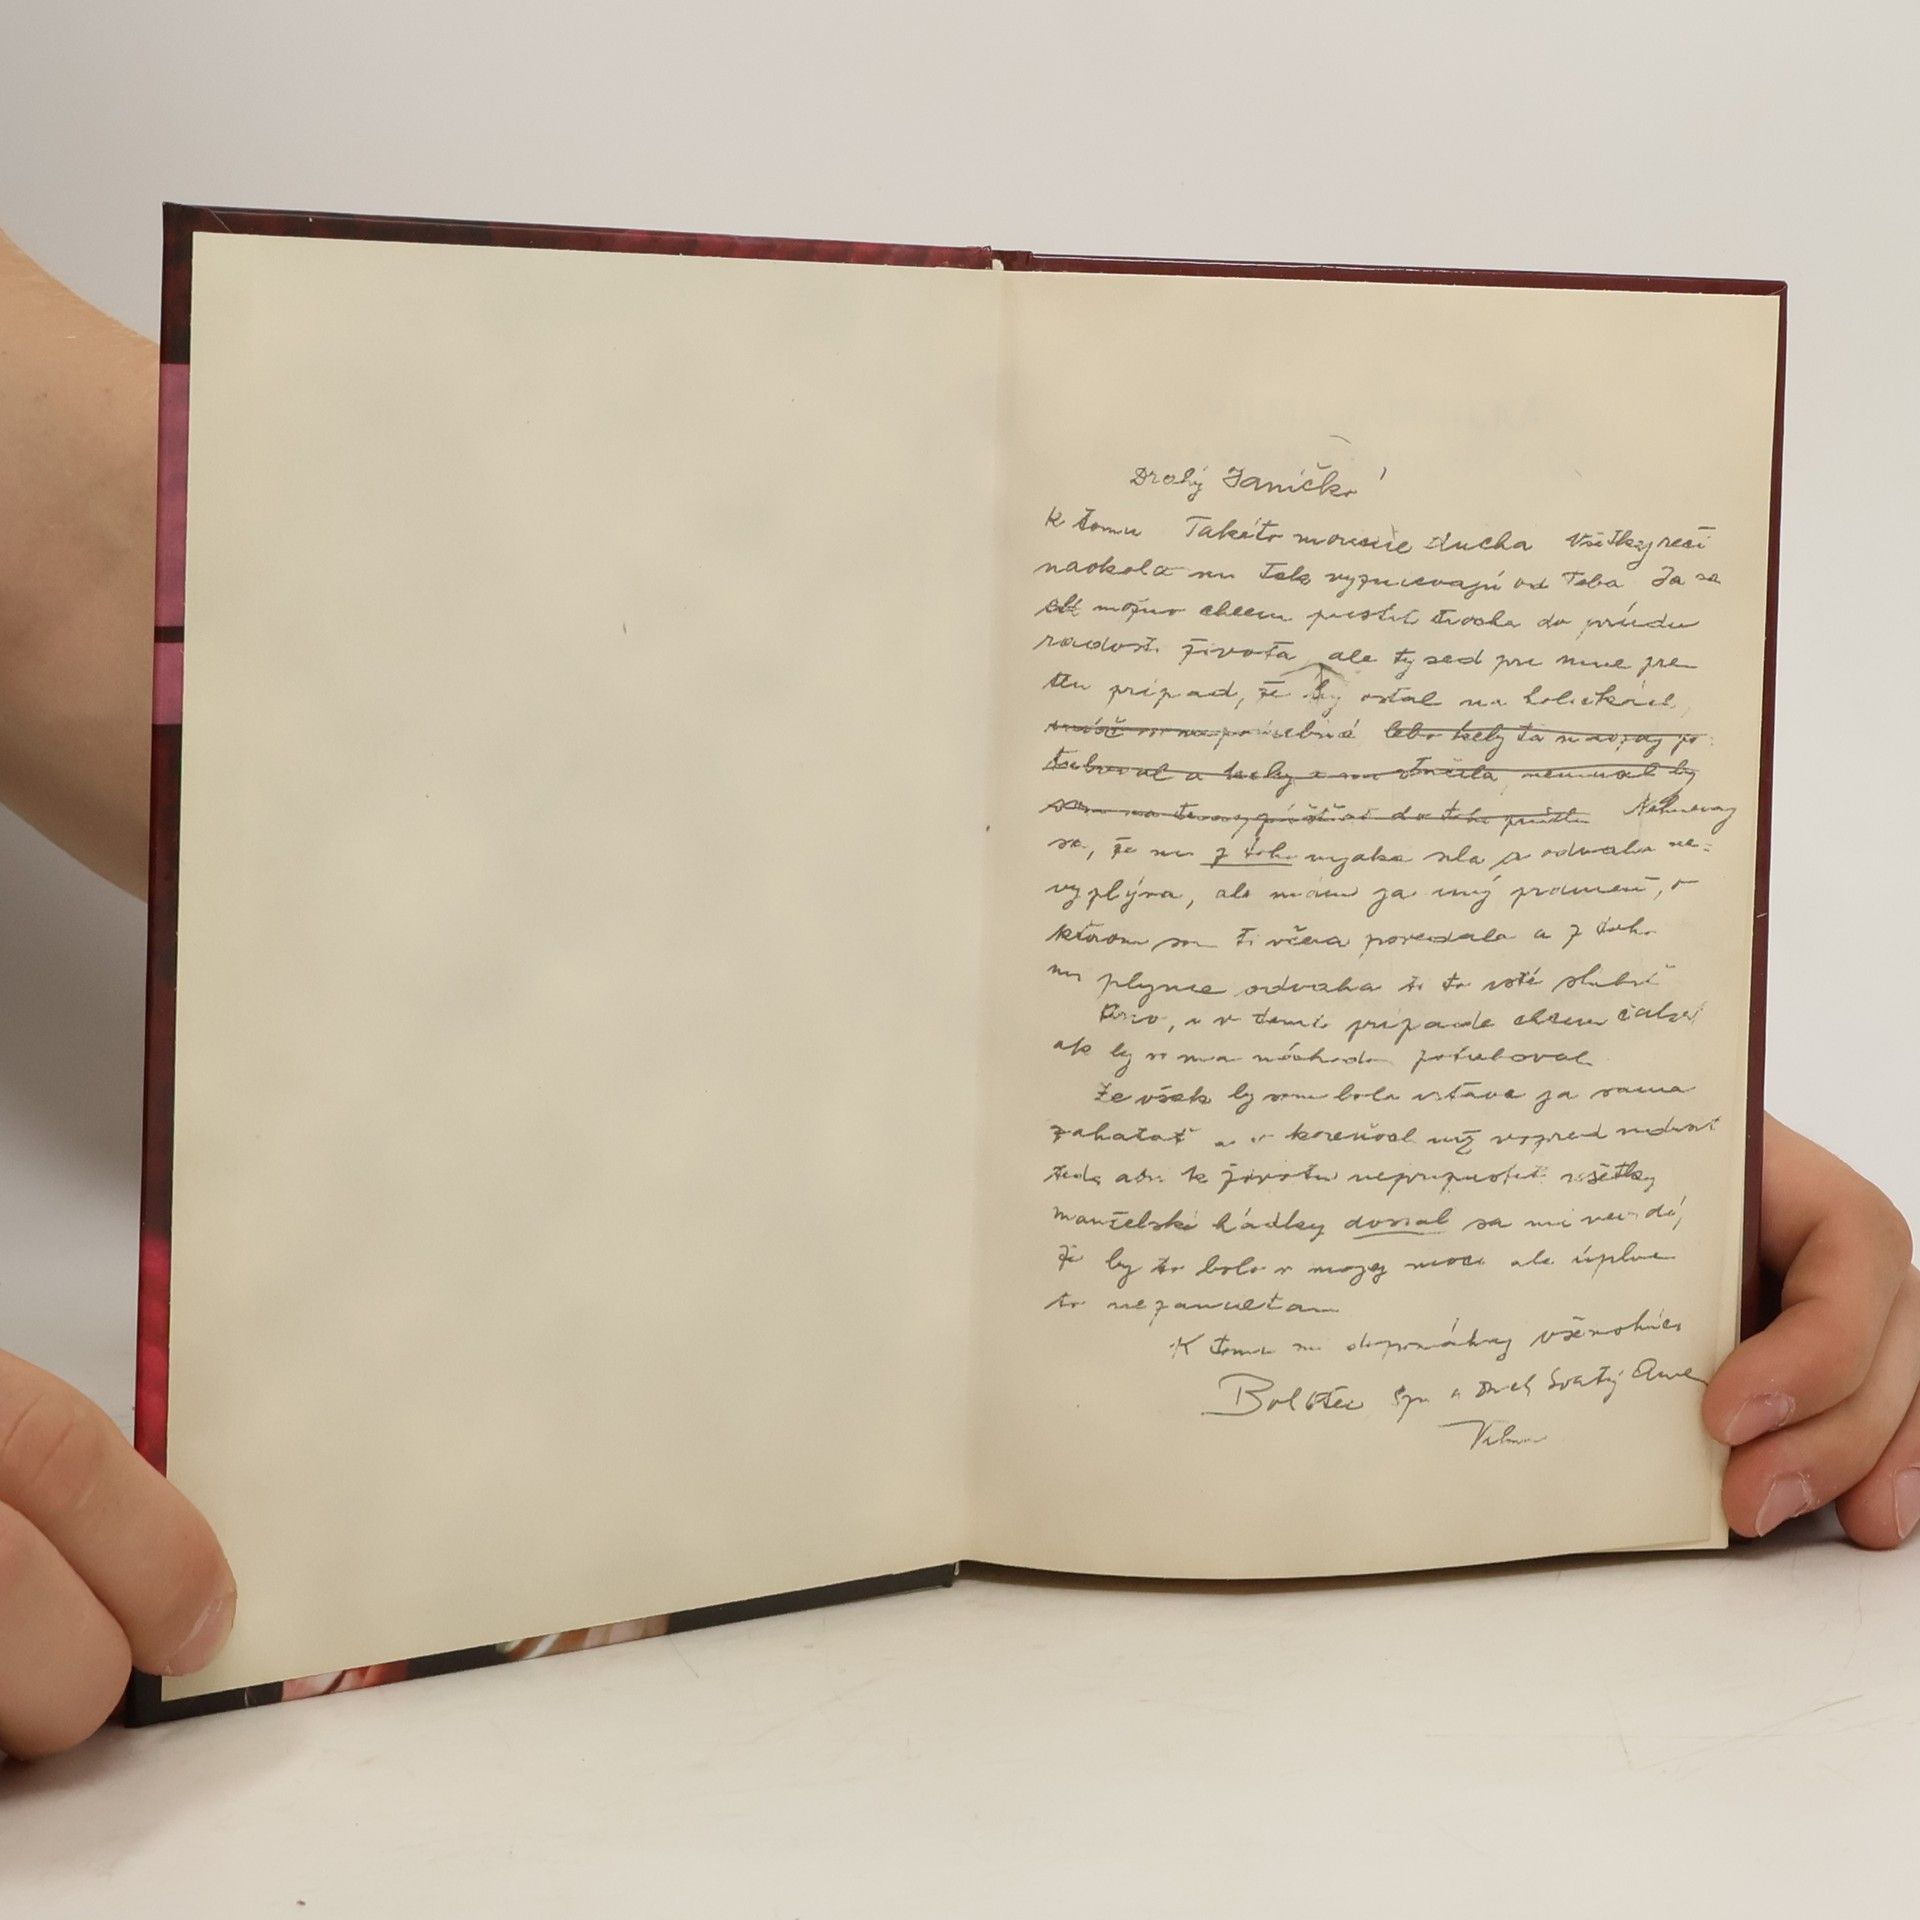 Drahý Janíčko!
K tomu Takéto ducha Všetky reči
naokolo mi tak od Teba Ja sa
možno chcem pustiť trocha do prúdu
radosti života ale ty seď pri mne pre
ten prípad, že by ostal na holičkách,
lebo keby ťa naozaj po
treboval a keby
som na teraz do toho Nehnevaj
sa, že mi z toho nijaka sila a odvaha ne-
vyplýva, ale mám ja iný prameň, o
ktorom som ti včera povedala a z toho
mi plynie odvaha ti to isté sľubiť
Áno, a v tomto prípade chcem čakať
ak by si ma náhodou potreboval.
Že však by som bola v stave ja sama
zahatať a v koreňoch už vopred
teda ani k životu nepripustiť všetky
manželské hádky dosial sa mi nezdá,
že by to bolo v mojej moci ale úplne
to nezamietam
K tomu mi dopomáhaj všemohúci
Boh Otec Syn a Duch Svätý Amen
Vilma